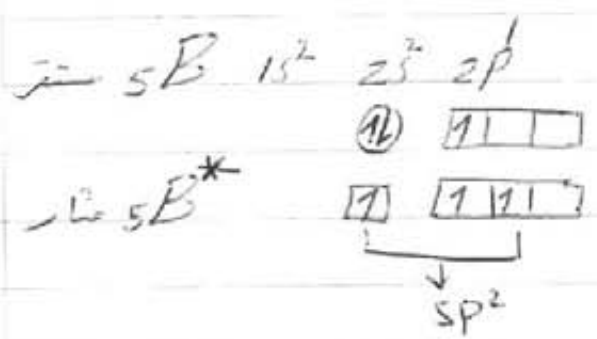 مستقر ₅B 1s² 2s² 2p¹
↿⇂ 1
مثار ₅B* 1 1 1
sp²